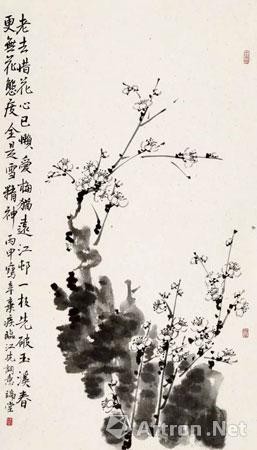 老去惜花心已懶愛梅猶遶江邨一枝先破玉溪春
更無花態度全是雪精神 丙申寫辛棄疾臨江仙詞意 瑞堂
Artron.Net